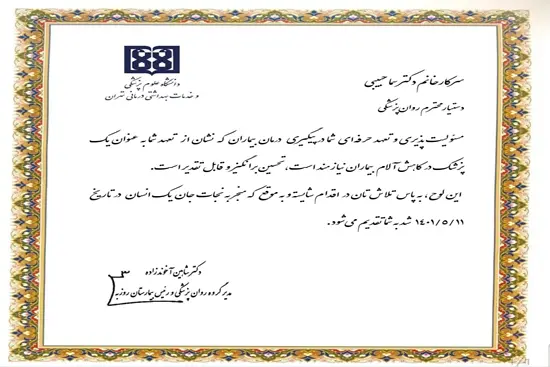 دانشگاه علوم پزشکی
و خدمات بهداشتی درمانی تهران
سرکار خانم دکتر سما حبیبی
دستیار محترم روان پزشکی
مسئولیت پذیری و تعهد حرفه ای شما در پیگیری درمان بیماران که نشان از تعهد شما به عنوان یک
پزشک در کاهش آلام بیماران نیازمند است، تحسین برانگیز و قابل تقدیر است.
این لوح، به پاس تلاش تان در اقدام شایسته و به موقع که منجر به نجات جان یک انسان در تاریخ
۱۴۰۱/۵/۱۱ شد به شما تقدیم می شود.
دکتر شاهین آخوندزاده
مدیر گروه روان پزشکی و رئیس بیمارستان روزبه